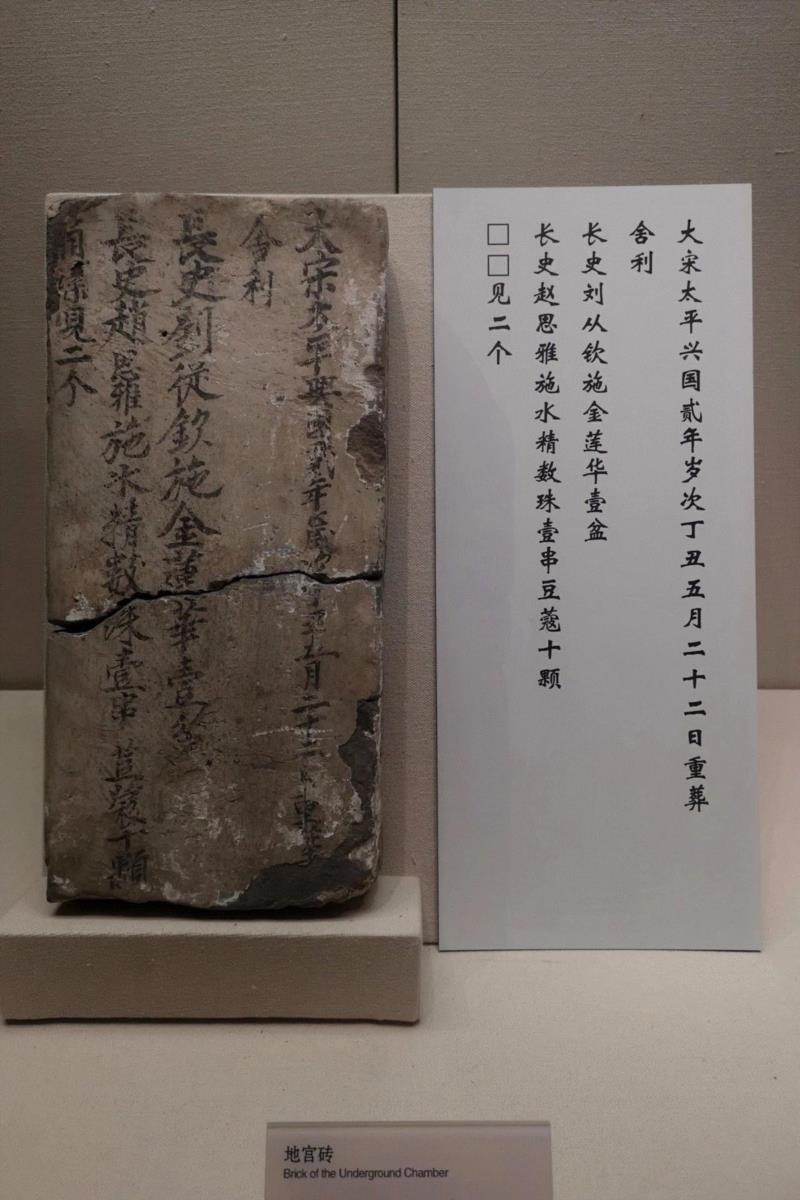 大宋太平興國貳年歲次丁丑五月二十二日重葬
舍利
長史劉從欽施金蓮華壹盆
長史趙思雅施水精數珠壹串荳蔻十顆
見二个
大宋太平兴国贰年岁次丁丑五月二十二日重葬
舍利
长史刘从钦施金莲华壹盆
长史赵思雅施水精数珠壹串豆蔻十颗
□□见二个
地宫砖
Brick of the Underground Chamber